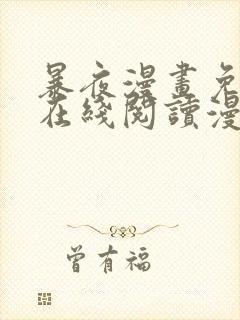 暴夜漫畫免
在綫閱讀漫
曾有福